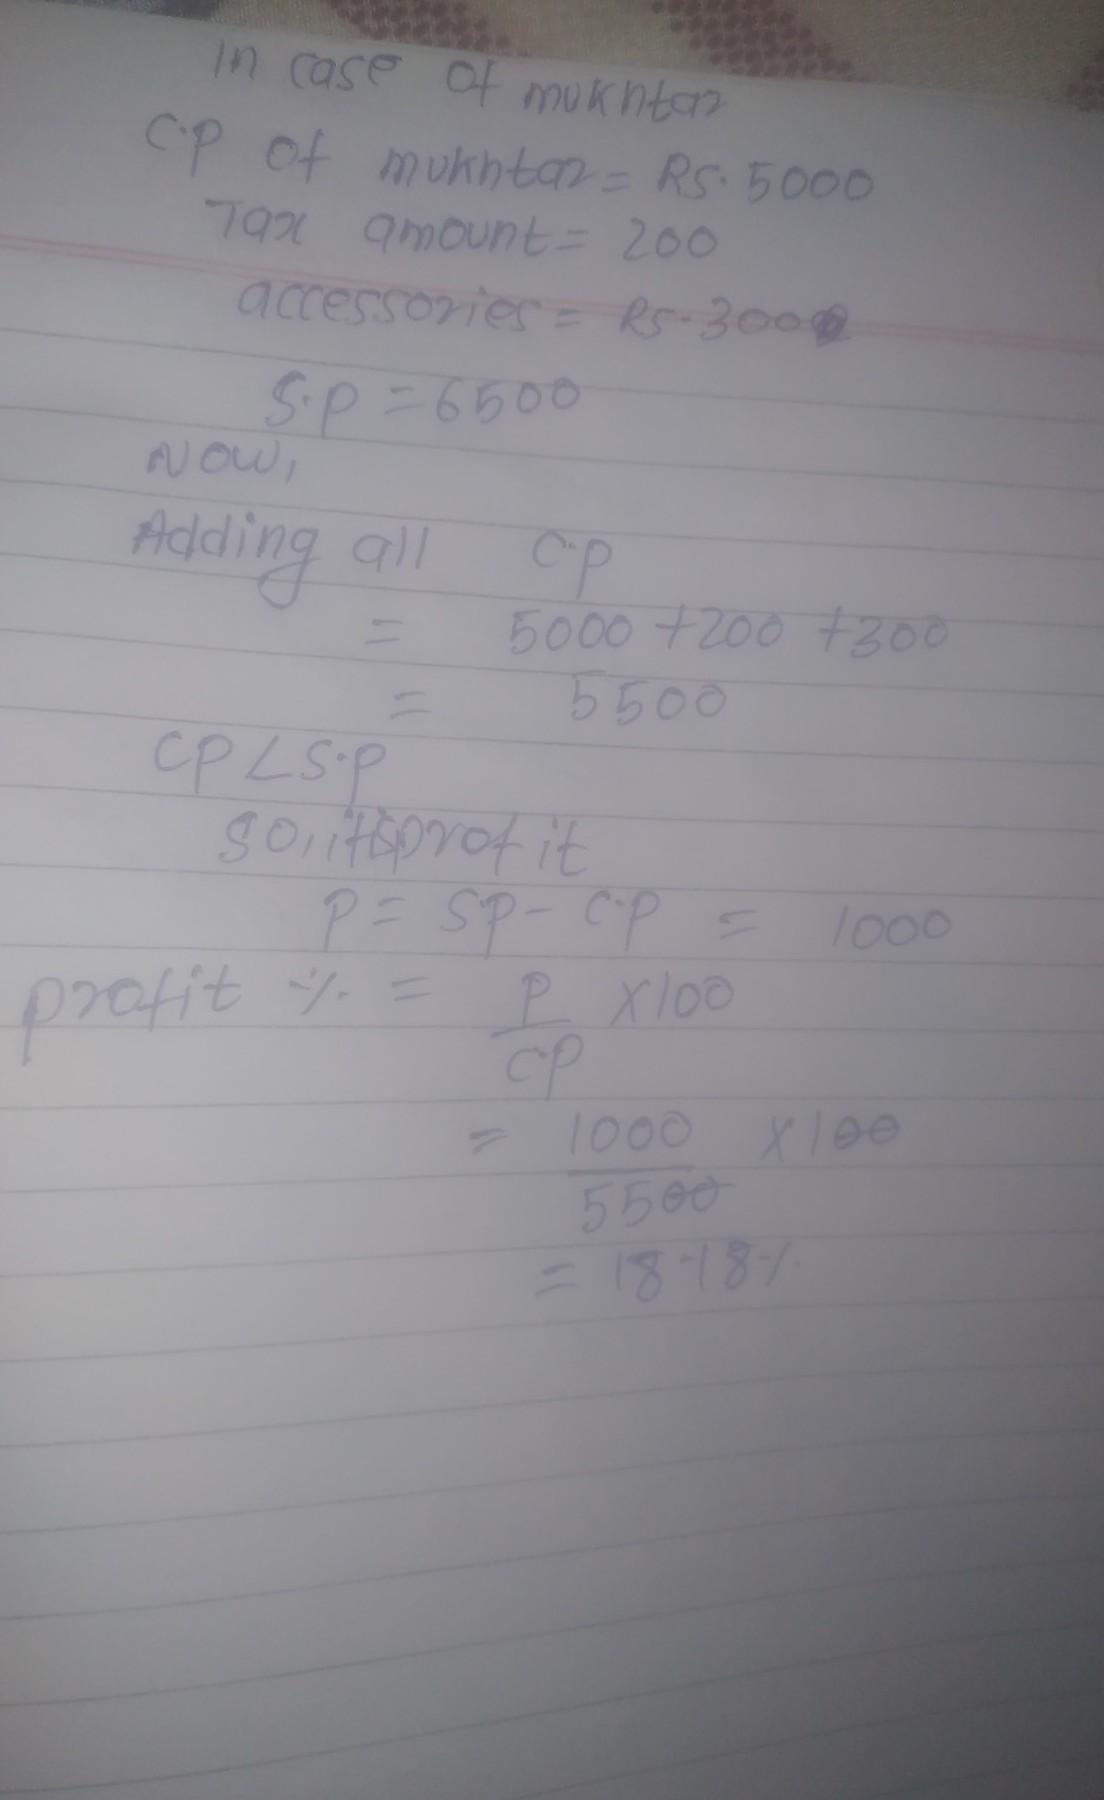 In case of mukhtar
C.P of mukhtar = Rs. 5000
Tax amount = 200
accessories = Rs. 300
S.P = 6500
Now,
Adding all C.P
= 5000 + 200 + 300
= 5500
CP < S.P
So, its profit
P = SP - C.P = 1000
profit % = P/CP × 100
= 1000/5500 × 100
= 18.18%